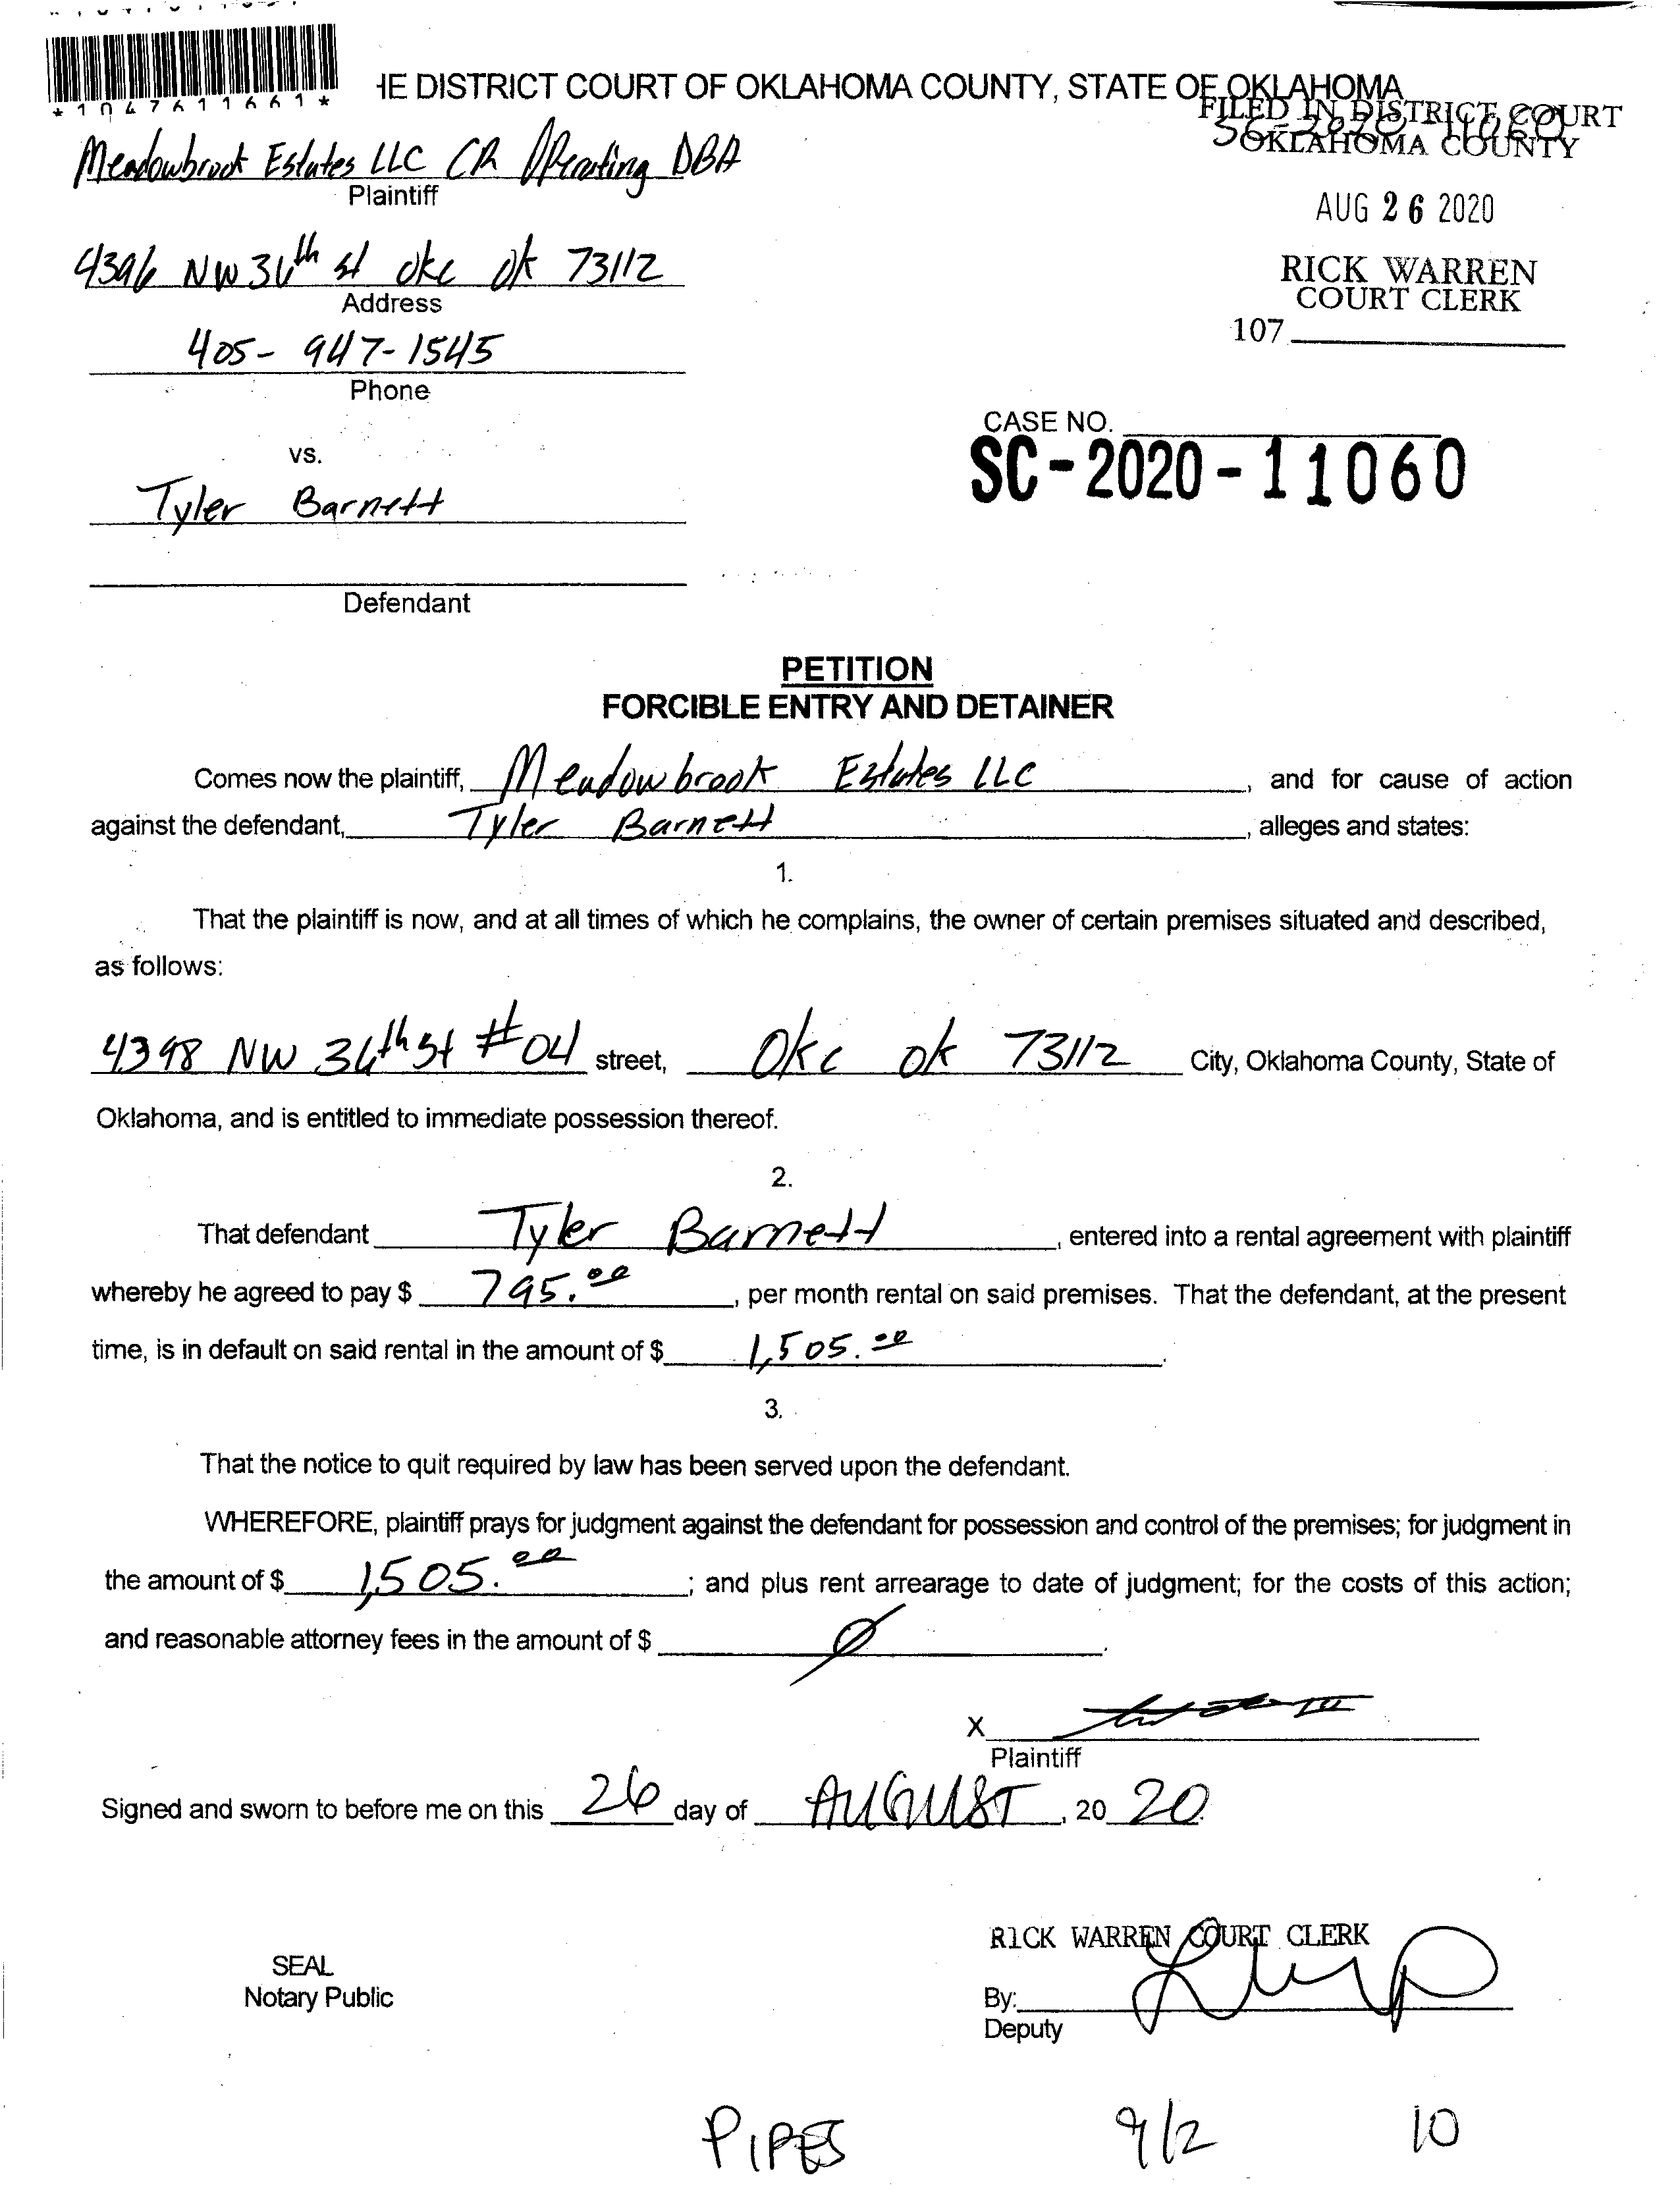 *1047611661*
HE DISTRICT COURT OF OKLAHOMA COUNTY, STATE OF OKLAHOMA
FILED IN DISTRICT COURT
OKLAHOMA COUNTY
SC-2020-11060
Meadowbrook Estates LLC CR Operating DBA
Plaintiff
AUG 26 2020
4396 NW 36th st okc ok 73112
Address
RICK WARREN
COURT CLERK
107
405-947-1545
Phone
CASE NO.
SC-2020-11060
vs.
Tyler Barnett
Defendant
PETITION
FORCIBLE ENTRY AND DETAINER
Comes now the plaintiff, Meadowbrook Estates LLC, and for cause of action
against the defendant, Tyler Barnett, alleges and states:
1.
That the plaintiff is now, and at all times of which he complains, the owner of certain premises situated and described,
as follows:
4398 NW 36th St #04 street, Okc ok 73112 City, Oklahoma County, State of
Oklahoma, and is entitled to immediate possession thereof.
2.
That defendant Tyler Barnett, entered into a rental agreement with plaintiff
whereby he agreed to pay $ 795.00, per month rental on said premises. That the defendant, at the present
time, is in default on said rental in the amount of $ 1,505.00.
3.
That the notice to quit required by law has been served upon the defendant.
WHEREFORE, plaintiff prays for judgment against the defendant for possession and control of the premises; for judgment in
the amount of $ 1,505.00; and plus rent arrearage to date of judgment; for the costs of this action;
and reasonable attorney fees in the amount of $ Ø.
X
Plaintiff
Signed and sworn to before me on this 26 day of AUGUST, 20 20.
RICK WARREN COURT CLERK
SEAL
Notary Public
By:
Deputy
PIPES 9/2 10